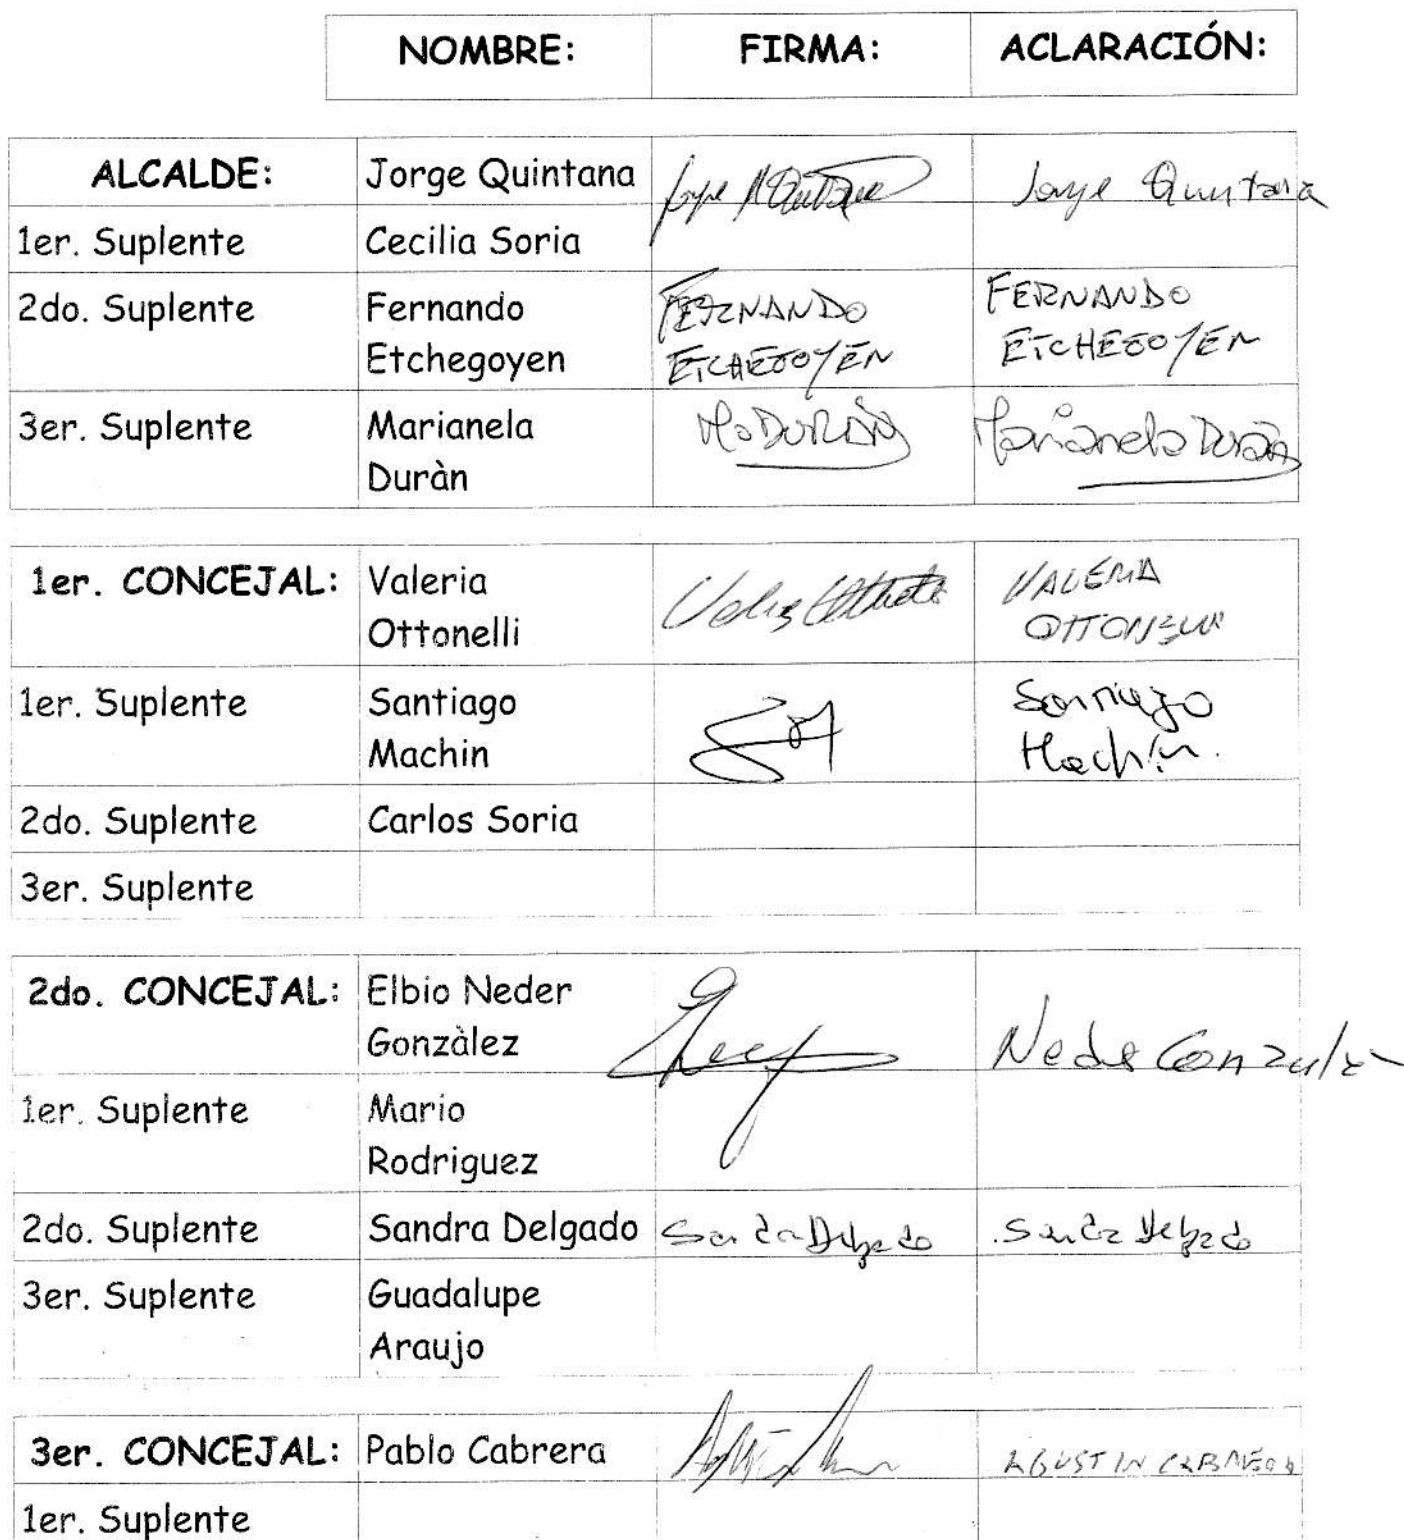 NOMBRE: FIRMA: ACLARACIÓN:
ALCALDE: Jorge Quintana Jorge Quintana
1er. Suplente Cecilia Soria
2do. Suplente Fernando FERNANDO FERNANDO
Etchegoyen ETCHEGOYEN ETCHEGOYEN
3er. Suplente Marianela Ma DURÁN Marianela Durán
Duràn
1er. CONCEJAL: Valeria VALERIA
Ottonelli OTTONELLI
1er. Suplente Santiago Santiago
Machin Machín.
2do. Suplente Carlos Soria
3er. Suplente
2do. CONCEJAL: Elbio Neder
Gonzàlez Neder Gonzalez
1er. Suplente Mario
Rodriguez
2do. Suplente Sandra Delgado Sandra Delgado Sandra Delgado
3er. Suplente Guadalupe
Araujo
3er. CONCEJAL: Pablo Cabrera AGUSTIN CABRERA
1er. Suplente